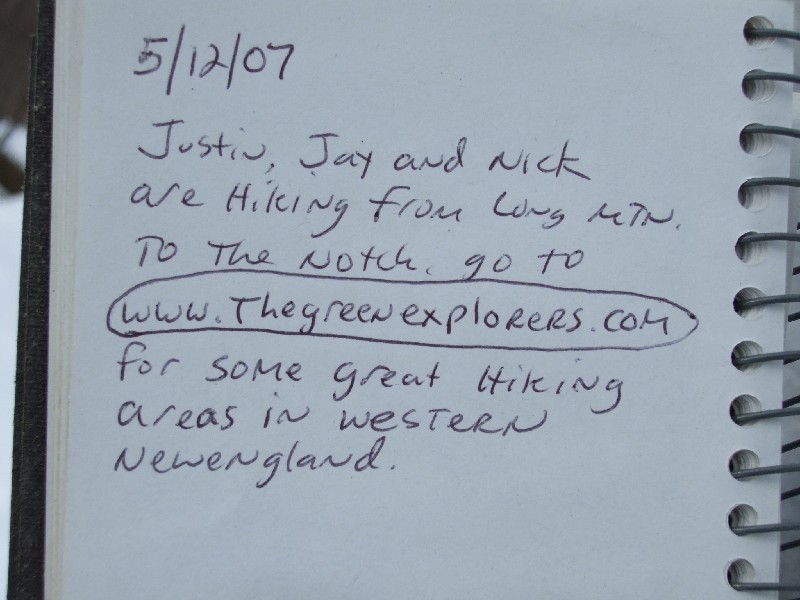 5/12/07
Justin, Jay and Nick
are Hiking from Long MTN.
TO The Notch. go to
www.Thegreenexplorers.com
for some great Hiking
areas in western
Newengland.